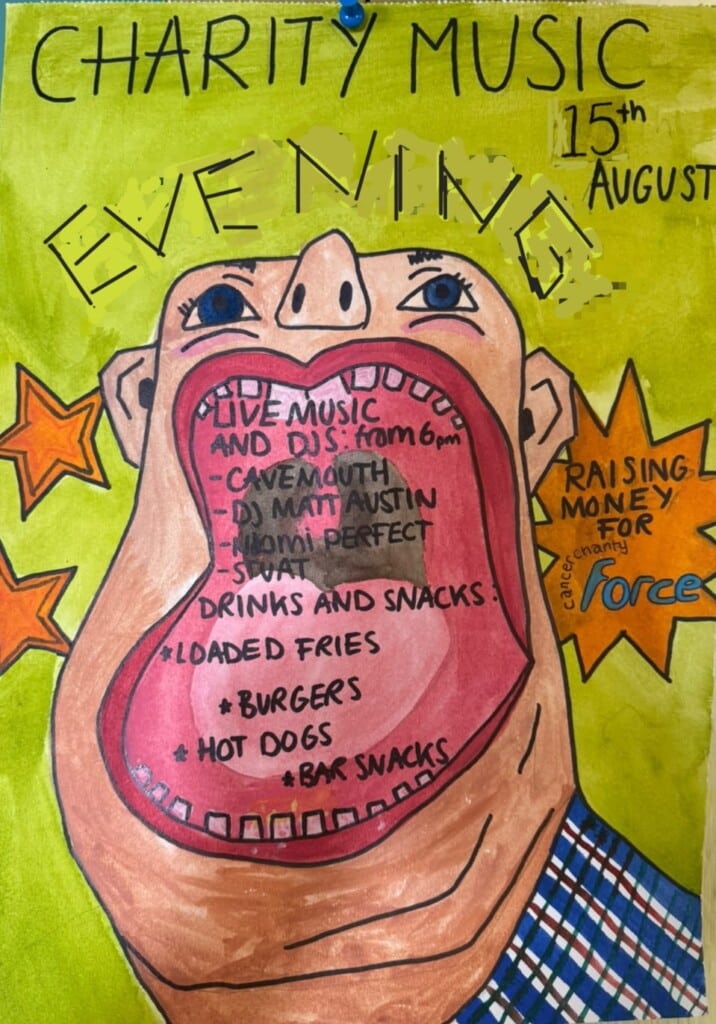 CHARITY MUSIC
15th
AUGUST
EVENING
LIVE MUSIC
AND DJS: from 6pm
- CAVEMOUTH
- DJ MATT AUSTIN
- NIOMI PERFECT
- STUAT
DRINKS AND SNACKS:
*LOADED FRIES
*BURGERS
* HOT DOGS
*BAR SNACKS
RAISING
MONEY
FOR
cancer charity
Force